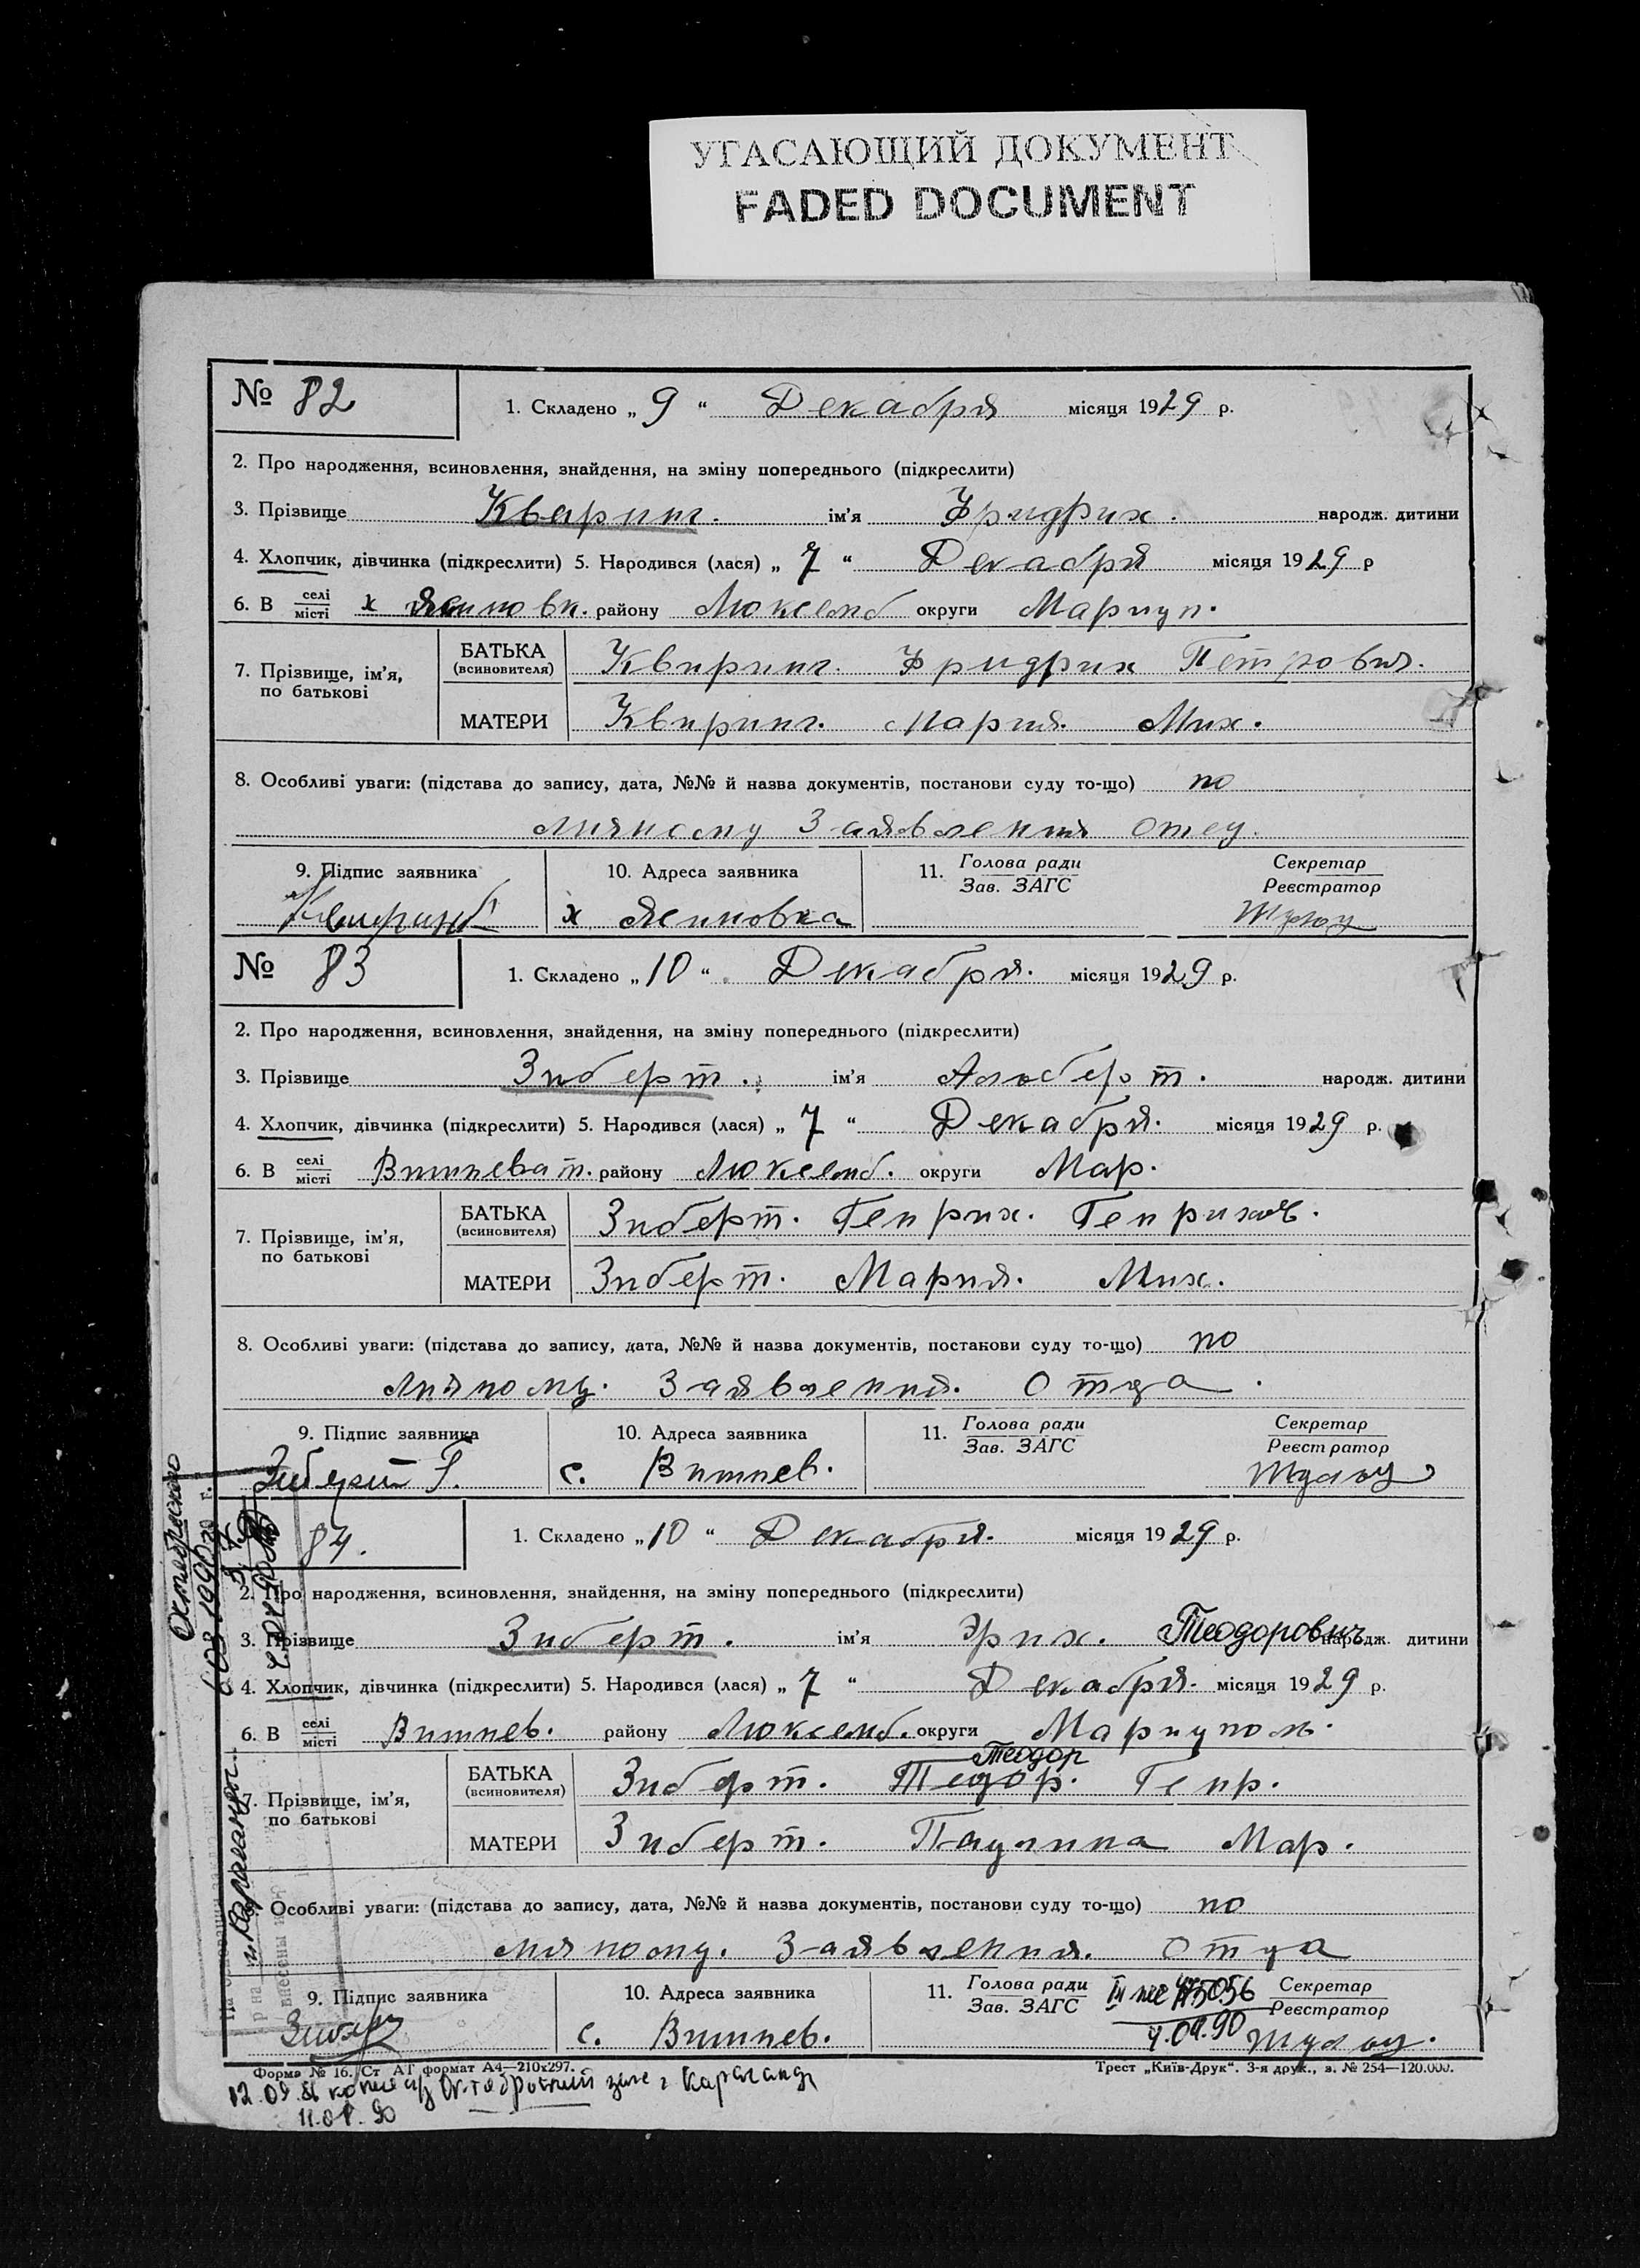 УГАСАЮЩИЙ ДОКУМЕНТ
FADED DOCUMENT
№ 82
1. Складено „ 9 “ Декабря місяця 1929 р.
2. Про народження, всиновлення, знайдення, на зміну попереднього (підкреслити)
3. Прізвище Квиринг. ім'я Фридрих. народж. дитини
4. Хлопчик, дівчинка (підкреслити) 5. Народився (лася) „ 7 “ Декабря місяця 1929 р
6. В селі/місті х Ясиновк. району Люксемб округи Мариуп.
7. Прізвище, ім'я, по батькові
БАТЬКА (всиновителя) Квиринг. Фридрих Петрович.
МАТЕРИ Квиринг. Мария. Мих.
8. Особливі уваги: (підстава до запису, дата, №№ й назва документів, постанови суду то-що) по
личному Заявления отец.
9. Підпис заявника 10. Адреса заявника 11. Голова ради/Зав. ЗАГС Секретар/Реєстратор
х Ясиновка
№ 83
1. Складено „ 10 “ Декабря. місяця 1929 р.
2. Про народження, всиновлення, знайдення, на зміну попереднього (підкреслити)
3. Прізвище Зиберт. ім'я Альберт. народж. дитини
4. Хлопчик, дівчинка (підкреслити) 5. Народився (лася) „ 7 “ Декабря. місяця 1929 р.
6. В селі/місті Вишневат. району Люксемб. округи Мар.
7. Прізвище, ім'я, по батькові
БАТЬКА (всиновителя) Зиберт. Генрих. Генрихов.
МАТЕРИ Зиберт. Мария. Мих.
8. Особливі уваги: (підстава до запису, дата, №№ й назва документів, постанови суду то-що) по
личному. Заявления. Отца.
9. Підпис заявника 10. Адреса заявника 11. Голова ради/Зав. ЗАГС Секретар/Реєстратор
Зиберт Г. с. Вишнев.
84.
1. Складено „ 10 “ Декабря. місяця 1929 р.
2. Про народження, всиновлення, знайдення, на зміну попереднього (підкреслити)
3. Прізвище Зиберт. ім'я Эрих. Теодорович народж. дитини
4. Хлопчик, дівчинка (підкреслити) 5. Народився (лася) „ 7 “ Декабря. місяця 1929 р.
6. В селі/місті Вишнев. району Люксемб. округи Мариупол.
Теодор
7. Прізвище, ім'я, по батькові
БАТЬКА (всиновителя) Зиберт. Теодор. Генр.
МАТЕРИ Зиберт. Паулина Мар.
Особливі уваги: (підстава до запису, дата, №№ й назва документів, постанови суду то-що) по
личному. Заявления. Отца
9. Підпис заявника 10. Адреса заявника 11. Голова ради/Зав. ЗАГС Секретар/Реєстратор
с. Вишнев.
4.09.90
Форма № 16. Ст АГ формат А4—210х297.
Трест „Київ-Друк“. 3-я друк., з. № 254—120.000.
Октябрьский загс г Караганды
Октябрьского
г. Караганды
внесены